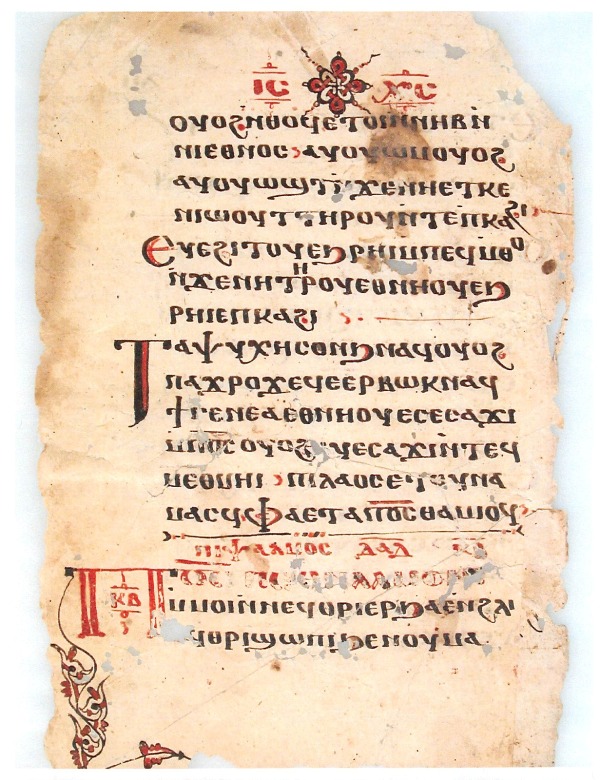 ⲓ̅ⲥ̅ ⲭ̅ⲥ̅
ⲟⲩⲟϩⲛⲑⲟϥⲉⲧⲟⲓⲛⲛⲏⲃⲛ
ⲛⲓⲉⲑⲛⲟⲥ ⲁⲩⲟⲩⲱⲙⲟⲩⲟϩ
ⲁⲩⲟⲩⲱϣⲧⲛϫⲉⲛⲛⲉⲧⲕⲉ
ⲛⲓⲱⲟⲩⲧⲧⲏⲣⲟⲩⲛⲧⲉⲡⲕⲁϩⲓ
Ⲉⲩⲉϩⲓⲧⲟⲩⲉϧⲣⲏⲓⲙⲡⲉϥⲙⲑⲟ
ⲛϫⲉⲛⲏⲧⲏⲣⲟⲩⲉⲑⲛⲏⲟⲩⲉϧ
ⲣⲏⲓⲉⲡⲕⲁϩⲓ
Ⲧⲁⲯⲩⲭⲏⲥⲟⲛϧⲛⲁϥⲟⲩⲟϩ
ⲡⲁϫⲣⲟϫⲉϥⲉⲉⲣⲃⲱⲕⲛⲁϥ
ϯⲅⲉⲛⲉⲁⲉⲑⲛⲏⲟⲩⲉⲥⲉⲥⲁϫⲓ
ⲙⲡⲟ̅ⲥ̅ⲟⲩⲟϩⲉⲩⲉⲥⲁϫⲓⲛⲧⲉϥ
ⲙⲉⲑⲙⲏⲓ ⲡⲓⲗⲁⲟⲥⲉⲧⲟⲩⲛⲁ
ⲙⲁⲥϥⲫⲁⲉⲧⲁⲡ̅ⲟ̅ⲥ̅ⲑⲁⲙⲓⲟϥ
ⲡⲓⲯⲁⲗⲙⲟⲥ ⲇⲁⲇ
ⲕⲃ
ⲙⲙⲟⲓⲛⲛⲉϥⲑⲣⲓⲉⲣϧⲁⲉⲛϩⲗⲓ
ⲁϥⲑⲣⲓϣⲱⲡⲓϧⲉⲛⲟⲩⲙⲁ